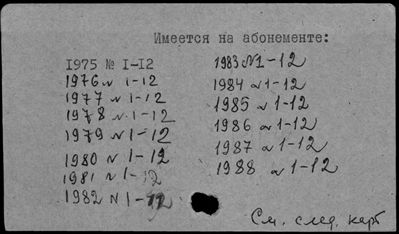 Имеется на абонементе:
1975 № 1-12
1976 № 1-12
1977 № 1-12
1978 № 1-12
1979 № 1-12
1980 № 1-12
1981 № 1-12
1982 № 1-12
1983 № 1-12
1984 № 1-12
1985 № 1-12
1986 № 1-12
1987 № 1-12
1988 № 1-12
См. след. карт